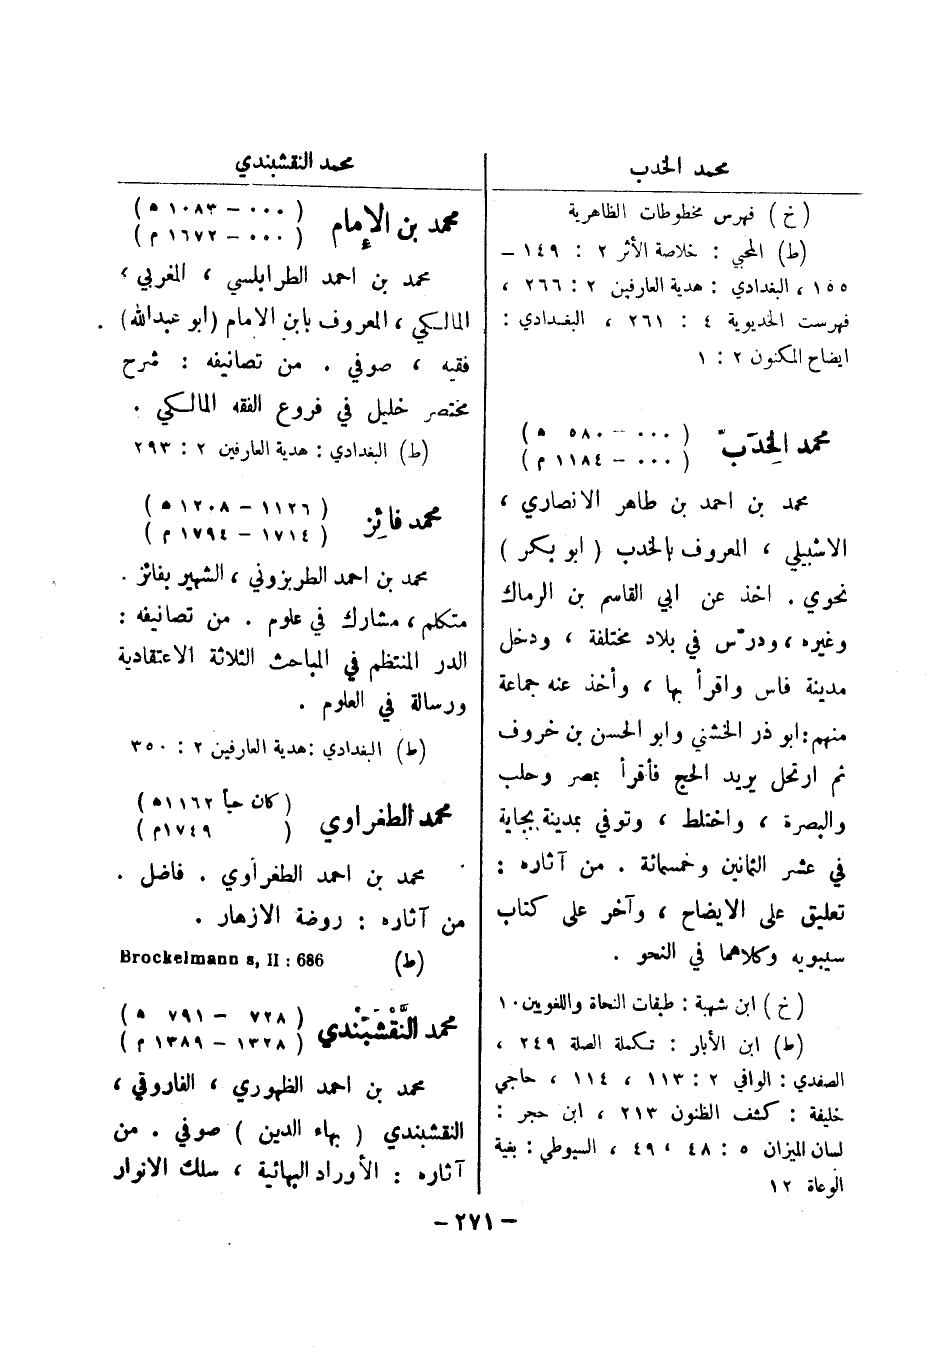 محمد الخدب
(خ) فهرس مخطوطات الظاهرية
(ط) المحبي : خلاصة الأثر ٢ : ١٤٩ –
١٥٥ ، البغدادي : هدية العارفين ٢ : ٢٦٦ ،
فهرست الخديوية ٤ : ٢٦١ ، البغدادي :
ايضاح المكنون ٢ : ١
محمد الخِدَبّ
( ٠٠٠ – ٥٨٠ ه )
( ٠٠٠ – ١١٨٤ م )
محمد بن احمد بن طاهر الانصاري ،
الاشبيلي ، المعروف بالخدب ( ابو بكر )
نحوي . اخذ عن ابي القاسم بن الرماك
وغيره ، ودرّس في بلاد مختلفة ، ودخل
مدينة فاس واقرأ بها ، وأخذ عنه جماعة
منهم : ابو ذر الخشني وابو الحسن بن خروف
ثم ارتحل يريد الحج فأقرأ بمصر وحلب
والبصرة ، واختلط ، وتوفي بمدينة بجاية
في عشر الثمانين وخمسمائة . من آثاره :
تعليق على الايضاح ، وآخر على كتاب
سيبويه وكلاهما في النحو .
(خ) ابن شهبة : طبقات النحاة واللغويين ١٠
(ط) ابن الأبار : تكملة الصلة ٢٤٩ ،
الصفدي : الوافي ٢ : ١١٣ ، ١١٤ ، حاجي
خليفة : كشف الظنون ٢١٣ ، ابن حجر :
لسان الميزان ٥ : ٤٨ ، ٤٩ ، السيوطي : بغية
الوعاة ١٢
محمد النقشبندي
محمد بن الإمام
( ٠٠٠ – ١٠٨٣ ه )
( ٠٠٠ – ١٦٧٢ م )
محمد بن احمد الطرابلسي ، المغربي ،
المالكي ، المعروف بابن الامام (ابو عبدالله) .
فقيه ، صوفي . من تصانيفه : شرح
مختصر خليل في فروع الفقه المالكي .
(ط) البغدادي : هدية العارفين ٢ : ٢٩٣
محمد فائز
( ١١٢٦ – ١٢٠٨ ه )
( ١٧١٤ – ١٧٩٤ م )
محمد بن احمد الطربزوني ، الشهير بفائز .
متكلم ، مشارك في علوم . من تصانيفه :
الدر المنتظم في المباحث الثلاثة الاعتقادية
ورسالة في العلوم .
(ط) البغدادي : هدية العارفين ٢ : ٣٥٠
محمد الطغراوي
( كان حياً ١١٦٢ ه )
( ١٧٤٩ م )
محمد بن احمد الطغرأوي . فاضل .
من آثاره : روضة الازهار .
(ط) Brockelmann s, II : 686
محمد النَّقْشَبَنْدي
( ٧٢٨ – ٧٩١ ه )
( ١٣٢٨ – ١٣٨٩ م )
محمد بن احمد الظهوري ، الفاروقي ،
النقشبندي ( بهاء الدين ) صوفي . من
آثاره : الأوراد البهائية ، سلك الانوار
– ٢٧١ –